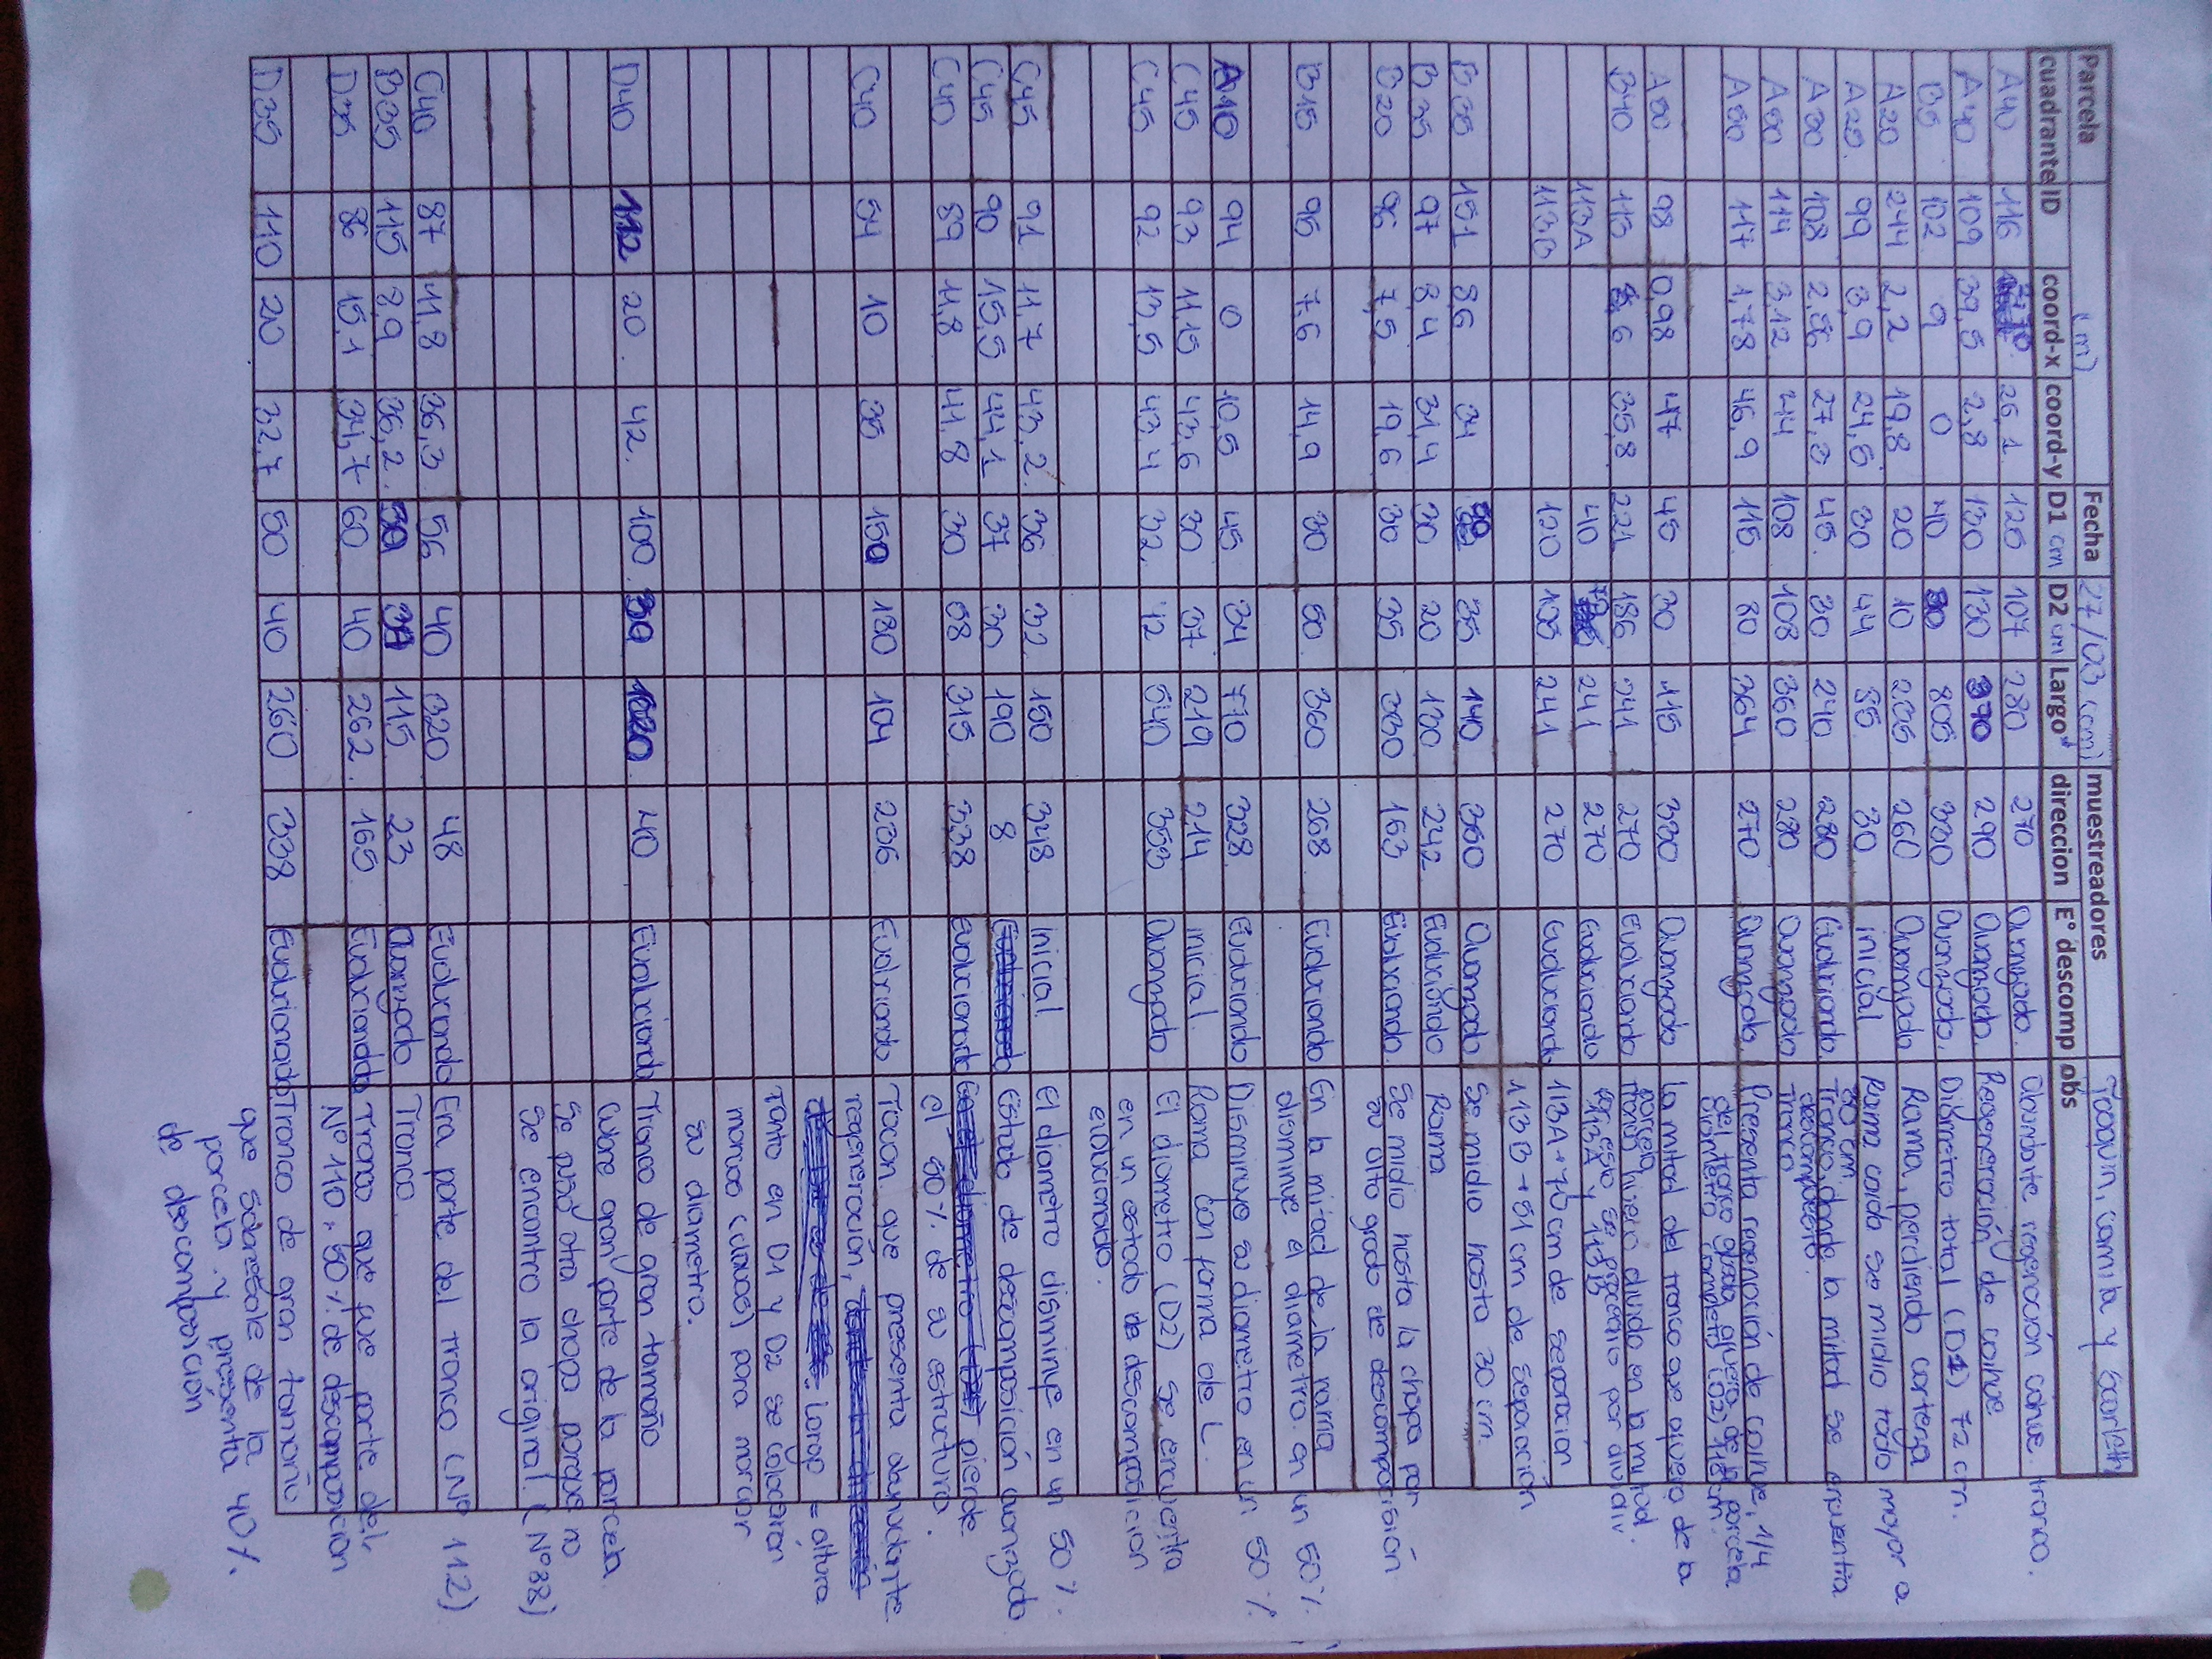 Parcela (m) Fecha 27/03 (cm) muestreadores Joaquin, camila y Scarleth
cuadrante ID coord-x coord-y D1 cm D2 cm Largo* direccion E° descomp obs
A40 116 26,1 125 107 280 270 Avanzado. abundante regeneración coihue tronco.
A40 109 39,5 2,8 130 130 370 290 Avanzado. Regeneración de coihue
B5 102 9 0 40 805 330 Avanzado. Diámetro total (D1) 72 cm.
A20 244 2,2 19,8 20 10 235 260 Avanzado Rama, perdiendo corteza
A25. 99 3,9 24,5 30 44 85 30 inicial Rama caida se midio todo mayor a
30 cm.
A30 108 2,56 27,3 45. 30 240 280 Evoluciondo. Tronco, donde la mitad se encuentra
descompuesto.
A50 114 3,12 44 108 108 360 280 Avanzado Tronco
A50 117 1,78 46,9 115 80 364 270 Avanzado. Presenta regenación de coihue, 1/4
del tronco queda afuera de la parcela
Diámetro completo (D2) 118 cm.
A50 98 0,98 47 45 30 115 330 Avanzado La mitad del tronco que afuera de la
parcela
B40 113 6 35,8 221 186 241 270 Evoluciondo tronco hueco divido en la mitad.
por esto se procedio por dividir
113A 40 241 270 Evoluciondo 113A y 113B
113B 120 105 241 270 Evoluciondo 113A → 70 cm de separacion
113B → 51 cm de separación
B35 151 8,6 34 35 140 350 Avanzado Se midio hasta 30 cm.
B35 97 8,4 31,4 30 20 130 242 Evoluciondo Rama
B20 96 7,5 19,6 30 35 330 163 Evoluciondo. Se midio hasta la chapa por
su alto grado de descomposisión
B15 95 7,6 14,9 30 50. 360 268 Evoluciondo En la mitad de la rama
disminuye el diametro en un 50%.
A10 94 0 10,5 45 34 770 328 Evoluciondo Disminuye su diametro en un 50%.
C45 93 11,15 43,6 30 37 219 214 inicial. Rama con forma de L.
C45 92 13,5 43,4 32. 42 540 353 Avanzado El diametro (D2) se encuentra
en un estado de descomposicion
evolucionado.
C45 91 11,7 43,2. 36 32 150 348 Inicial. El diametro disminye en un 50%.
C45 90 15,5 44,1 37 30 190 8 Estado de descomposición avanzado
C40 89 11,8 41,8 30 58 315 338 Evolucionado pierde
el 50%. de su estructura.
C40 54 10 35 150 180 104 236 Evoluciondo Tocon que presenta abundante
regeneración,
Largo = altura
Tanto en D1 y D2 se colocaron
marcas (clavos) para marcar
su diametro.
D40 112 20. 42. 100. 1020 40 Evoluciondo Tronco de gran tamaño
Cubre gran parte de la parcela
Se puso otra chapa porque no
Se encontro la original. (N°88)
C40 87 11,8 36,3 56 40 320 48 Evoluciondo Era parte del tronco (N° 112)
B35 115 8,9 36,2. 115 23 Avanzado Tronco.
D35 86 15,1 34,7 60 40 262. 165 Tronco que fue parte del
N° 110, 50%. de descomposicion
D35 110 20 32,7 50 40 260 338 Evolucionado Tronco de gran tamaño
que sobresale de la
parcela y presenta 40%.
de descomposición